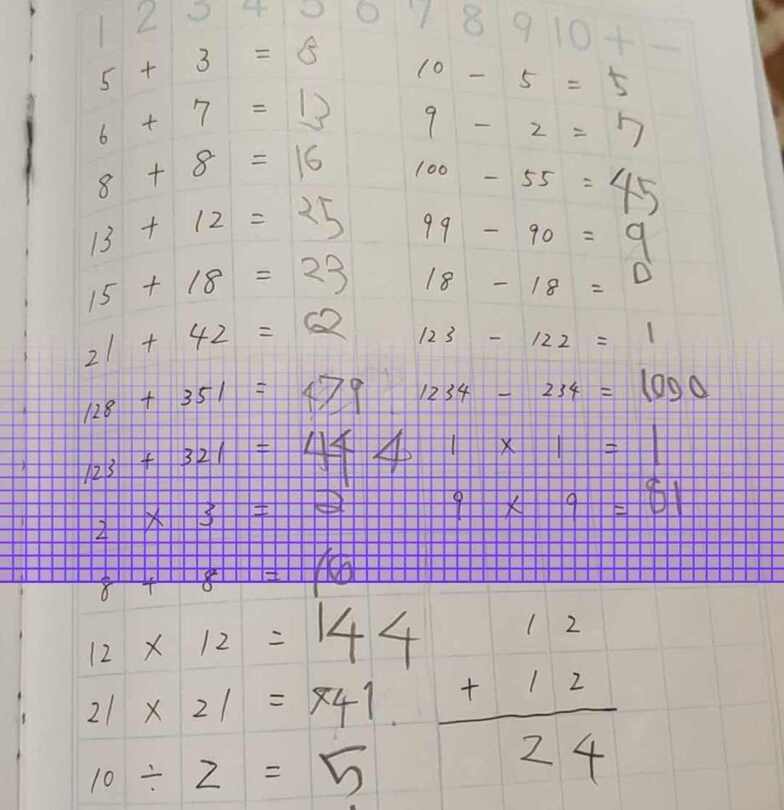 1 2 3 4 5 6 7 8 9 10 + -
5 + 3 = 8
6 + 7 = 13
8 + 8 = 16
13 + 12 = 25
15 + 18 = 23
21 + 42 = 62
128 + 351 = 479
123 + 321 = 444
2 × 3 =
8 + 8 = 16
12 × 12 = 144
21 × 21 = 441
10 ÷ 2 = 5
10 - 5 = 5
9 - 2 = 7
100 - 55 = 45
99 - 90 = 9
18 - 18 = 0
123 - 122 = 1
1234 - 234 = 1000
1 × 1 = 1
9 × 9 = 81
12
+ 12
24